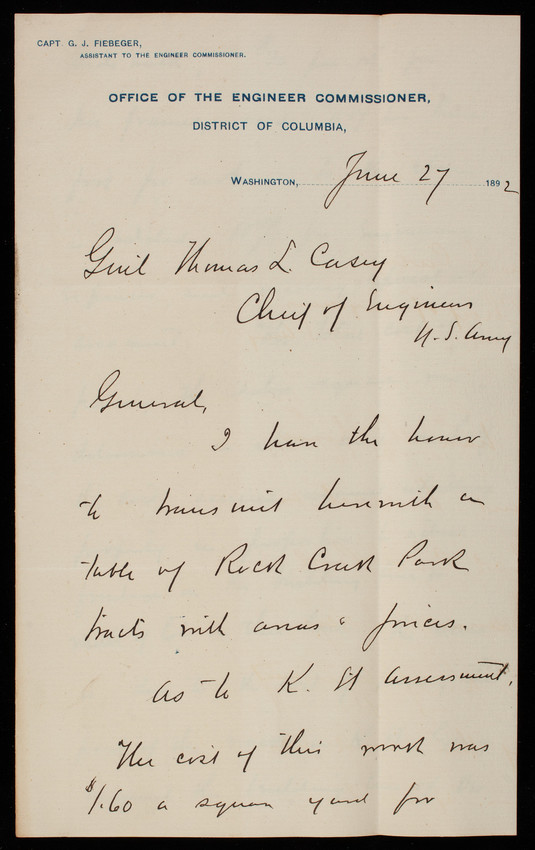 CAPT. G. J. FIEBEGER,
ASSISTANT TO THE ENGINEER COMMISSIONER.
OFFICE OF THE ENGINEER COMMISSIONER,
DISTRICT OF COLUMBIA,
WASHINGTON, June 27 1892
Genl Thomas L. Casey
Chief of Engineers
U. S. Army
General,
I have the honor
to transmit herewith a
table of Rock Creek Park
tracts with areas & prices.
As to K. St assessment,
The cost of this work was
$1.60 a square yard for